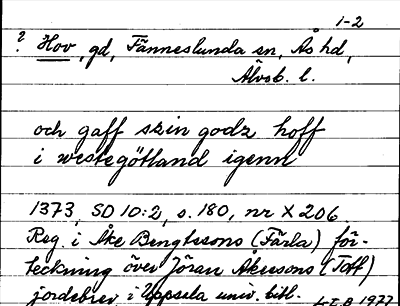 1-2
? Hov, gd, Fänneslunda sn, Ås hd,
Älvsb. l.
och gaff szin godz hoff
i westegötland igenn
1373, SD 10:2, s. 180, nr X 206
Reg. i Åke Bengtssons (Färla) för-
teckning över Jöran Åkessons (Tott)
jordebrev i Uppsala univ. bibl.
1977